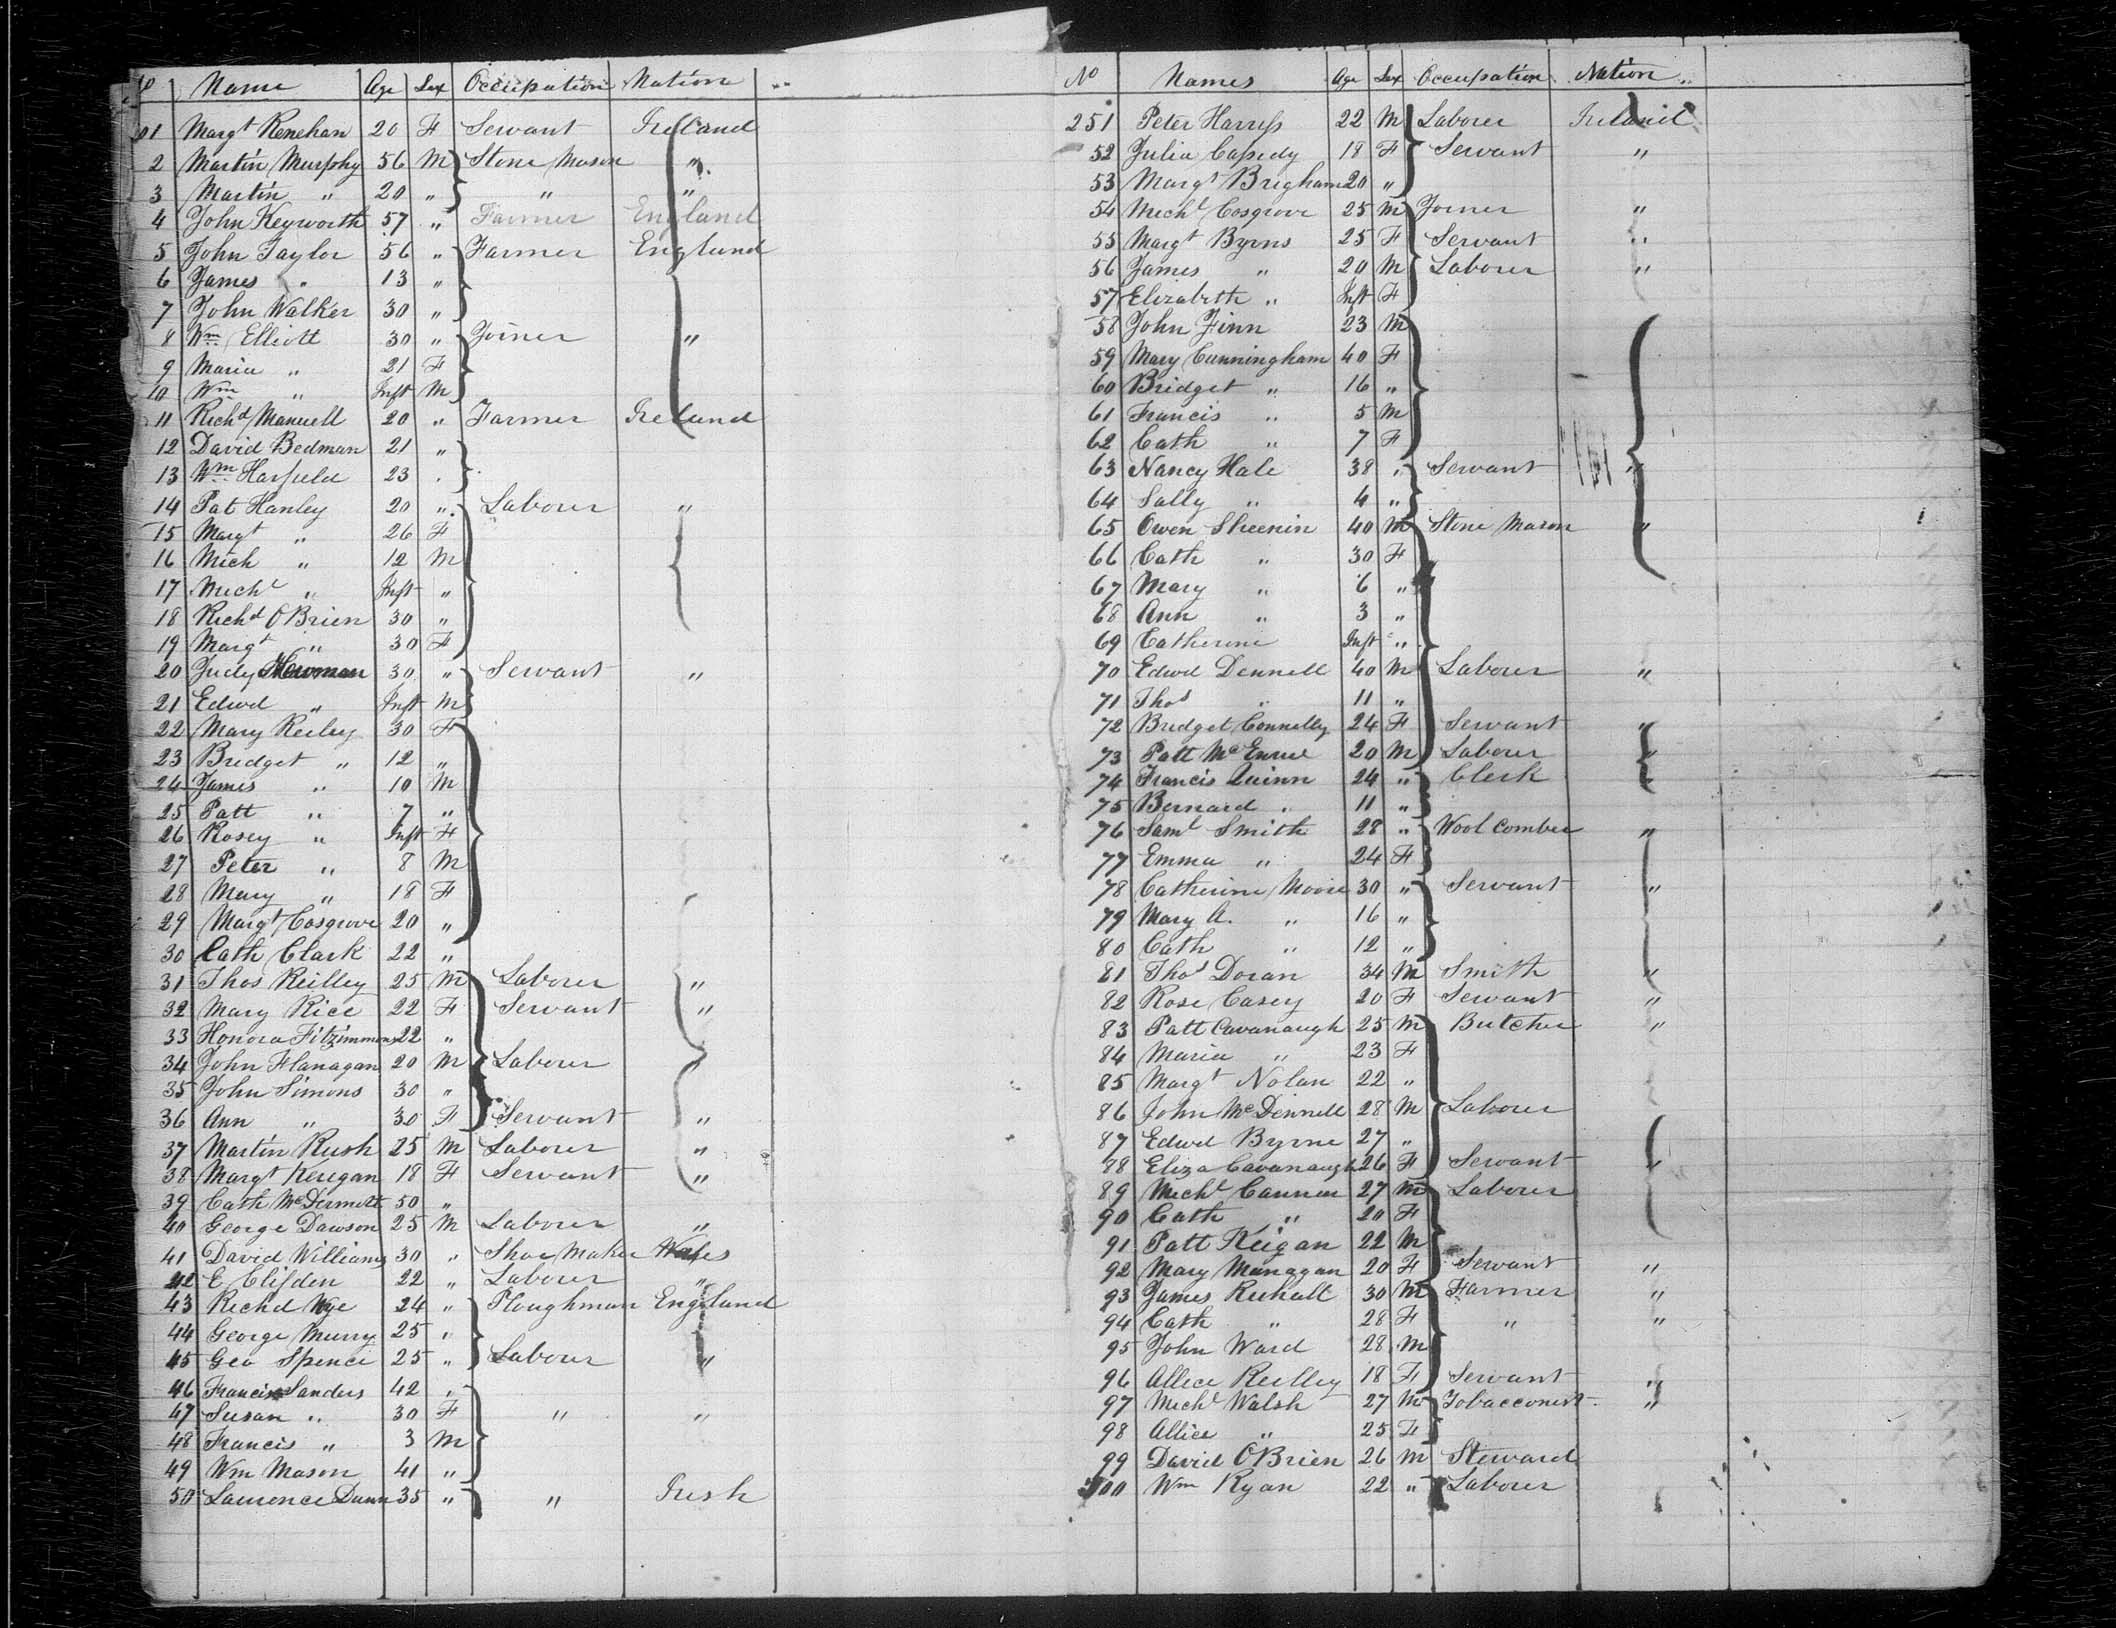 Name Age Sex Occupation Nation "
01 Margt Renehan 20 F Servant Ireland
2 Martin Murphy 56 M Stone Mason "
3 Martin " 20 " " "
4 John Keyworth 57 " Farmer England
5 John Taylor 56 " Farmer England
6 James " 13 "
7 John Walker 30 "
8 Wm Elliott 30 " Joiner "
9 Maria " 21 F
10 Wm " Inft M
11 Richd Manuell 20 " Farmer Ireland
12 David Bedman 21 "
13 Wm Harfield 23 "
14 Pat Hanley 20 " Laborer "
15 Margt " 26 F
16 Mich " 12 M
17 Michl " Inft "
18 Richd OBrien 30 "
19 Margt " 30 F
20 Judy Newman 30 " Servant "
21 Edwd " Inft M
22 Mary Reiley 30 F
23 Bridget " 12 "
24 James " 10 M
25 Patt " 7 "
26 Rosey " Inft F
27 Peter " 8 M
28 Mary " 18 F
29 Margt Cosgrove 20 "
30 Cath Clark 22 "
31 Thos Reilley 25 M Laborer "
32 Mary Rice 22 F Servant "
33 Honora Fitzimmons 22 "
34 John Flanagan 20 M Laborer
35 John Simons 30 "
36 Ann " 30 F Servant "
37 Martin Rush 25 M Laborer "
38 Margt Kerigan 18 F Servant "
39 Cath McDermott 50 "
40 George Dawson 25 M Laborer "
41 David Williams 30 " Shoe Maker Wales
42 E Clifden 22 " Laborer "
43 Richd Wye 24 " Ploughman England
44 George Murry 25 "
45 Geo Spence 25 " Laborer "
46 Francis Sanders 42 "
47 Susan " 30 F " "
48 Francis " 3 M
49 Wm Mason 41 "
50 Laurence Dunn 35 " " Irish
No Names Age Sex Occupation Nation "
251 Peter Harress 22 M Laborer Ireland
52 Julia Cassedy 18 F Servant "
53 Margt Brigham 20 "
54 Michl Cosgrove 25 M Joiner "
55 Margt Byrns 25 F Servant "
56 James " 20 M Laborer "
57 Elizabeth " Inft F
58 John Finn 23 M
59 Mary Cunningham 40 F
60 Bridget " 16 "
61 Francis " 5 M
62 Cath " 7 F
63 Nancy Hale 38 " Servant "
64 Sally " 4 "
65 Owen Sheenin 40 M Stone Mason "
66 Cath " 30 F
67 Mary " 6 "
68 Ann " 3 "
69 Catherine Inft "
70 Edwd Dennell 40 M Laborer "
71 Thos " 11 "
72 Bridget Connelly 24 F Servant "
73 Patt 20 M Laborer "
74 Francis Quinn 24 " Clerk
75 Bernard " 11 "
76 Saml Smith 28 " Wool Comber "
77 Emma " 24 F
78 Catherine Moore 30 " Servant "
79 Mary A. " 16 "
80 Cath " 12 "
81 Thos Doran 34 M Smith "
82 Rose Casey 20 F Servant "
83 Patt Cavanaugh 25 M Butcher "
84 Maria " 23 F
85 Margt Nolan 22 "
86 John McDennell 28 M Laborer
87 Edwd Byrne 27 "
88 Eliza Cavanaugh 26 F Servant "
89 Michl Cannon 27 M Laborer
90 Cath " 20 F
91 Patt Keigan 22 M
92 Mary Managan 20 F Servant "
93 James 30 M Farmer "
94 Cath " 28 F " "
95 John Ward 28 M
96 Allice Reilley 18 F Servant "
97 Michl Walsh 27 M Tobacconist "
98 Allice " 25 F
99 David OBrien 26 M Steward
300 Wm Ryan 22 " Laborer